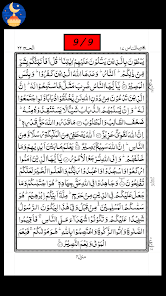 9 / 9
يَسْطُونَ بِالَّذِينَ يَتْلُونَ عَلَيْهِمْ اٰيٰتِنَا ۗ قُلْ اَفَاُنَبِّئُكُمْ بِشَرٍّ
مِّنْ ذٰلِكُمْ ۗ اَلنَّارُ ۗ وَعَدَهَا اللّٰهُ الَّذِينَ كَفَرُوا ۗ وَبِئْسَ
الْمَصِيرُ ۝ يٰٓاَيُّهَا النَّاسُ ضُرِبَ مَثَلٌ فَاسْتَمِعُوا لَهُ ۗ اِنَّ
الَّذِينَ تَدْعُونَ مِنْ دُونِ اللّٰهِ لَنْ يَّخْلُقُوا ذُبَابًا وَّلَوِ اجْتَمَعُوا
لَهُ ۗ وَاِنْ يَّسْلُبْهُمُ الذُّبَابُ شَيْئًا لَّا يَسْتَنْقِذُوهُ مِنْهُ ۗ ضَعُفَ
الطَّالِبُ وَالْمَطْلُوبُ ۝ مَا قَدَرُوا اللّٰهَ حَقَّ قَدْرِهِ ۗ اِنَّ اللّٰهَ
لَقَوِيٌّ عَزِيزٌ ۝ اَللّٰهُ يَصْطَفِي مِنَ الْمَلٰٓئِكَةِ رُسُلًا وَّمِنَ
النَّاسِ ۗ اِنَّ اللّٰهَ سَمِيعٌ بَصِيرٌ ۝ يَعْلَمُ مَا بَيْنَ اَيْدِيهِمْ وَمَا
خَلْفَهُمْ ۗ وَاِلَى اللّٰهِ تُرْجَعُ الْاُمُورُ ۝ يٰٓاَيُّهَا الَّذِينَ اٰمَنُوا
ارْكَعُوا وَاسْجُدُوا وَاعْبُدُوا رَبَّكُمْ وَافْعَلُوا الْخَيْرَ لَعَلَّكُمْ
تُفْلِحُونَ ۝ وَجَاهِدُوا فِي اللّٰهِ حَقَّ جِهَادِهِ ۗ هُوَ اجْتَبٰىكُمْ وَمَا
جَعَلَ عَلَيْكُمْ فِي الدِّينِ مِنْ حَرَجٍ ۗ مِلَّةَ اَبِيكُمْ اِبْرٰهِيمَ ۗ هُوَ سَمّٰىكُمُ
الْمُسْلِمِينَ مِنْ قَبْلُ وَفِي هٰذَا لِيَكُونَ الرَّسُولُ
شَهِيدًا عَلَيْكُمْ وَتَكُونُوا شُهَدَآءَ عَلَى النَّاسِ ۗ فَاَقِيمُوا
الصَّلٰوةَ وَاٰتُوا الزَّكٰوةَ وَاعْتَصِمُوا بِاللّٰهِ ۗ هُوَ مَوْلٰىكُمْ ۗ فَنِعْمَ
الْمَوْلٰى وَنِعْمَ النَّصِيرُ ۝